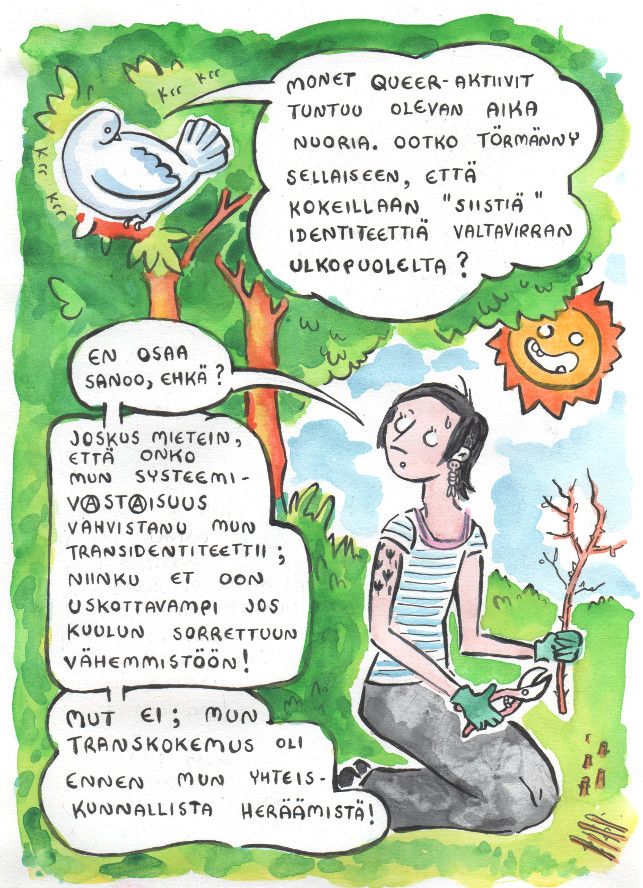 Krr Krr
Krr Krr
MONET QUEER-AKTIIVIT
TUNTUU OLEVAN AIKA
NUORIA. OOTKO TÖRMÄNNY
SELLAISEEN, ETTÄ
KOKEILLAAN "SIISTIÄ"
IDENTITEETTIÄ VALTAVIRRAN
ULKOPUOLELTA?
EN OSAA
SANOO, EHKÄ?
JOSKUS MIETEIN,
ETTÄ ONKO
MUN SYSTEEMI-
VⒶSTⒶISUUS
VAHVISTANU MUN
TRANSIDENTITEETTII;
NIINKU ET OON
USKOTTAVAMPI JOS
KUULUN SORRETTUUN
VÄHEMMISTÖÖN!
MUT EI; MUN
TRANSKOKEMUS OLI
ENNEN MUN YHTEIS-
KUNNALLISTA HERÄÄMISTÄ!